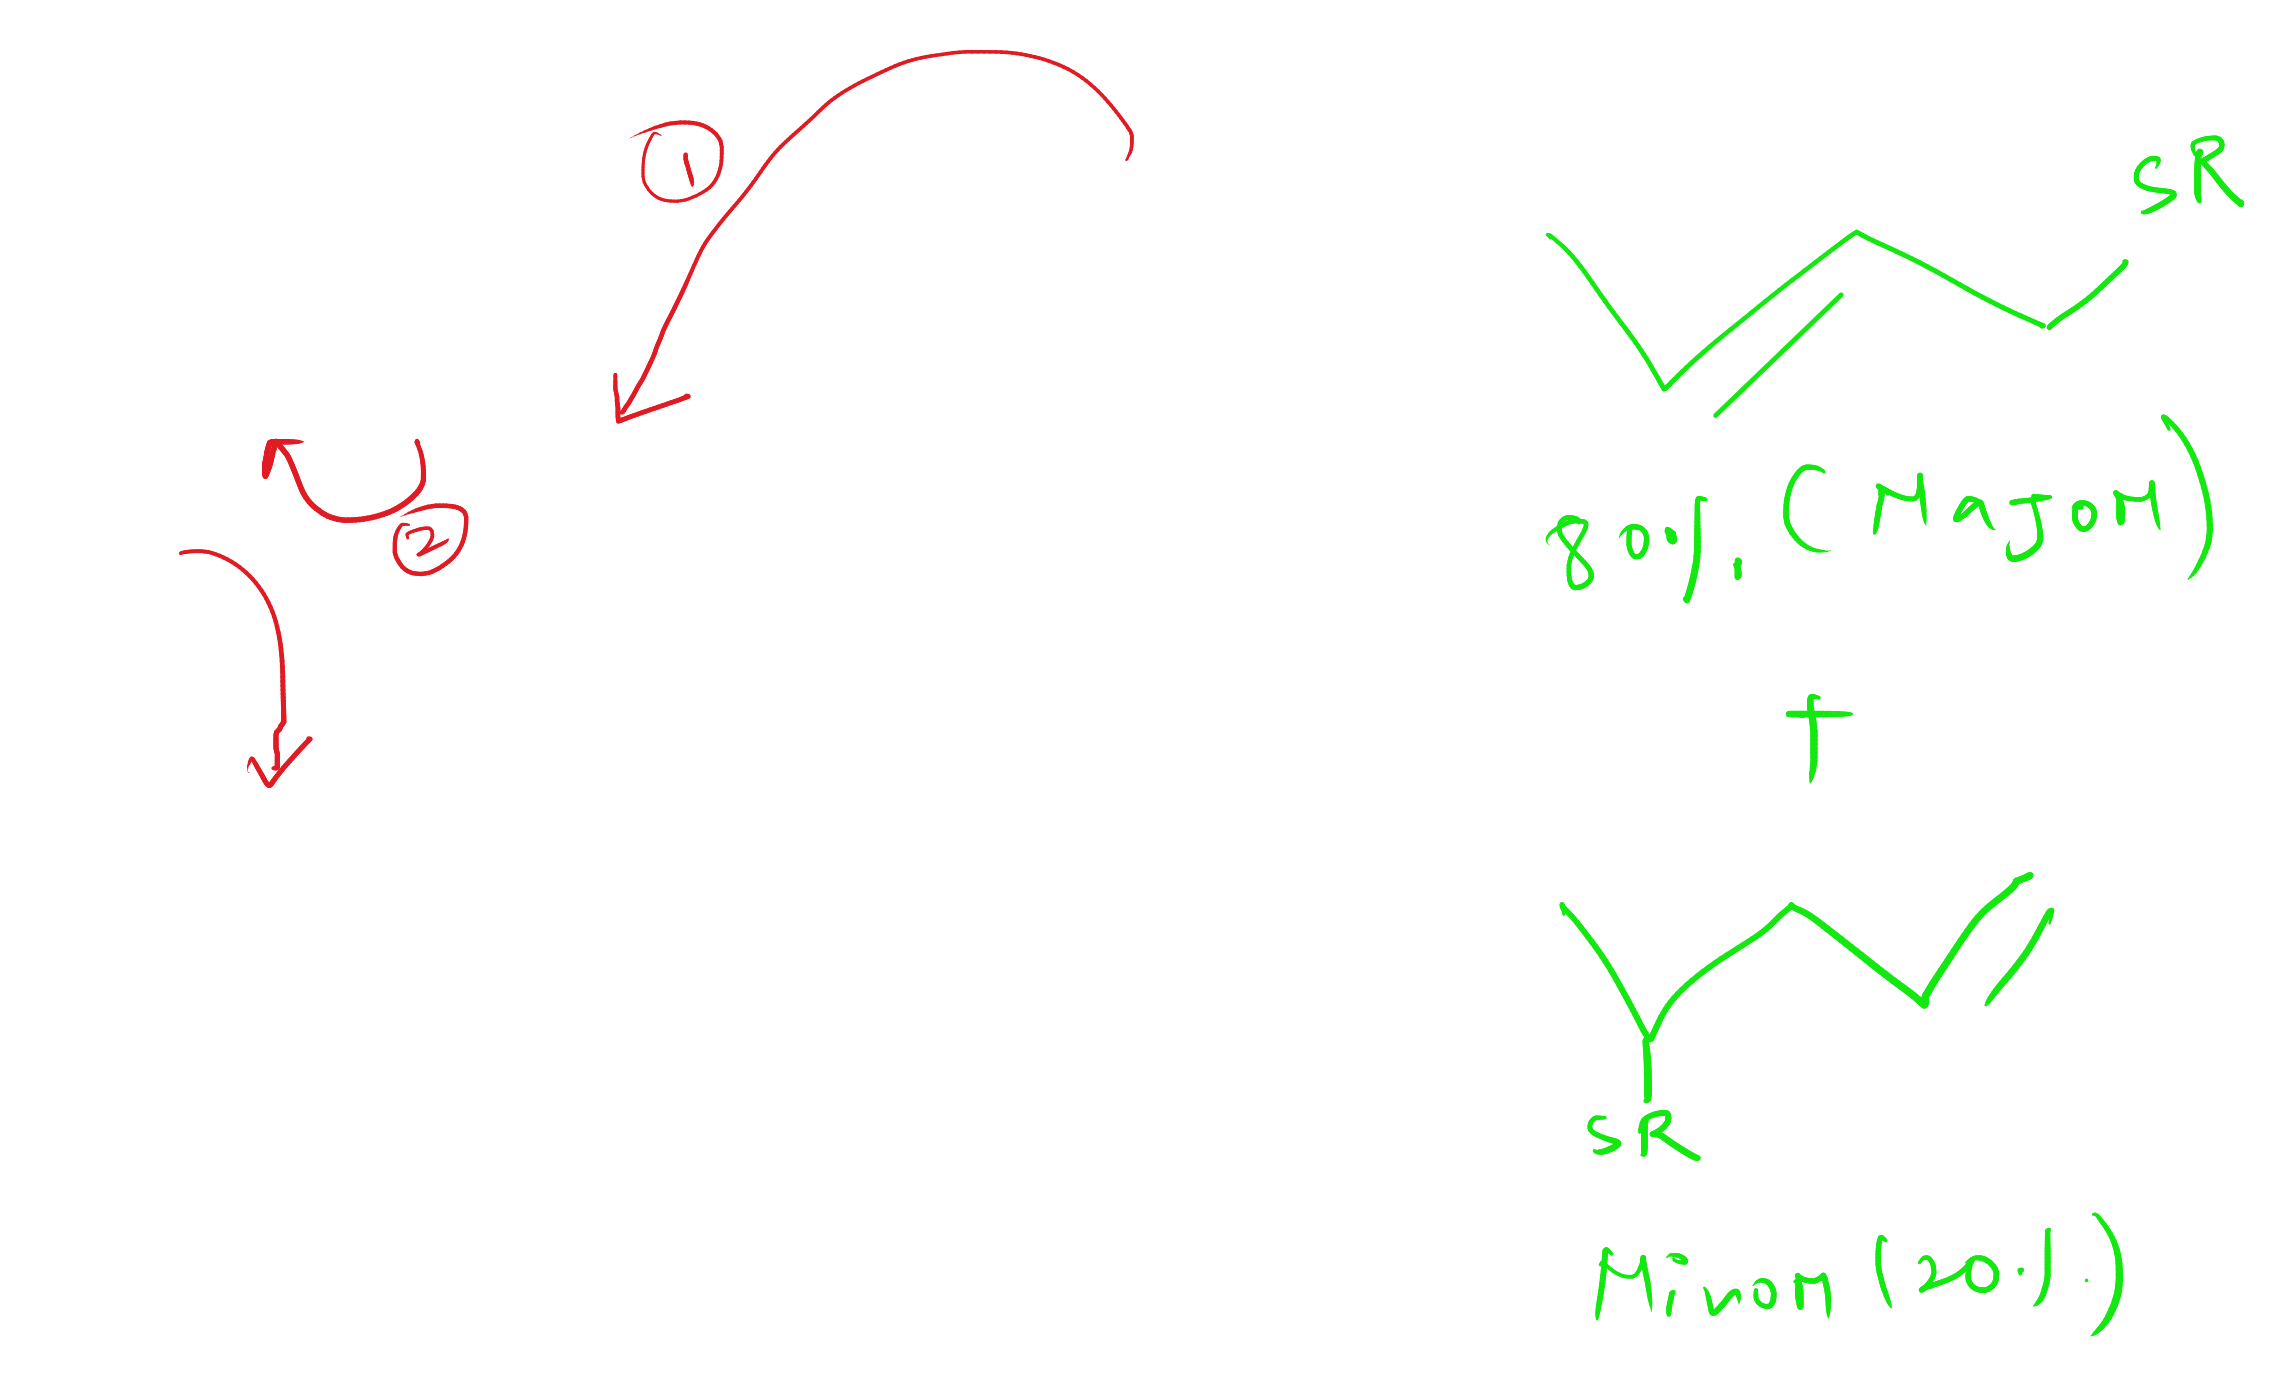 1
2
SR
80%. (Major)
+
SR
Minor (20%.)